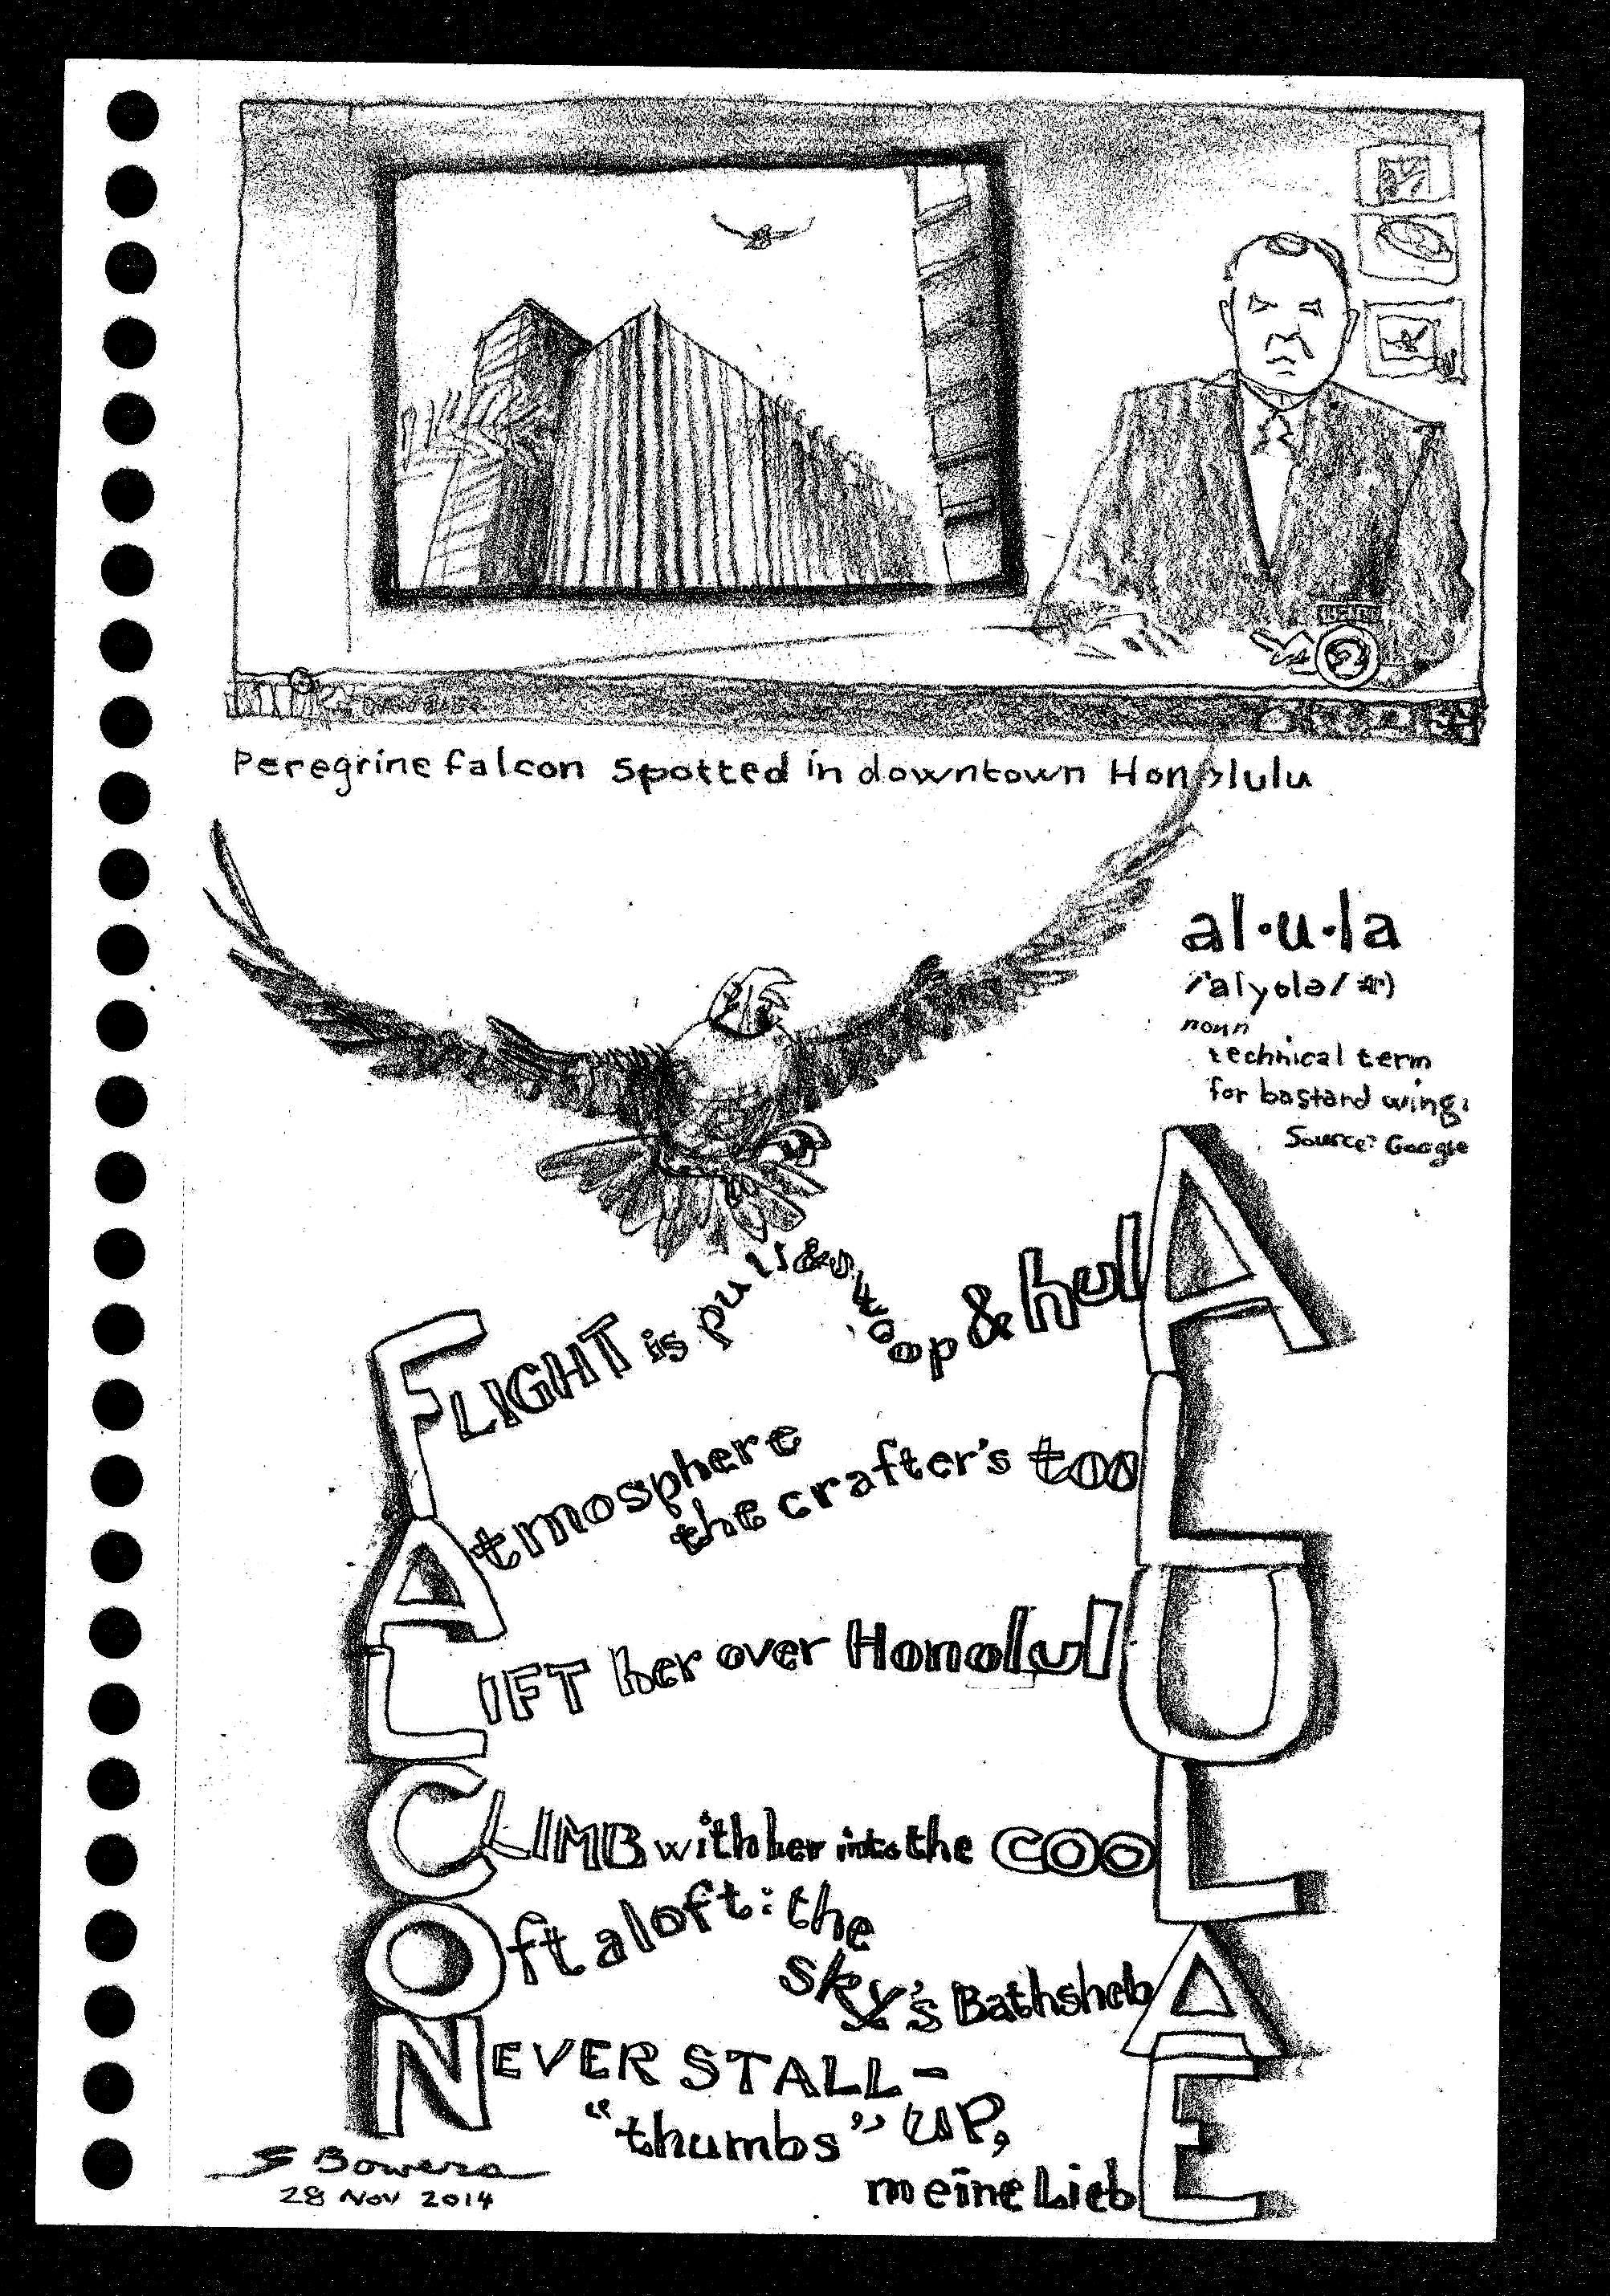 Peregrine falcon spotted in downtown Honolulu
al·u·la
/ˈalyələ/
noun
technical term
for bastard wing.
Source: Google
FLIGHT is pull & swoop & hulA
Atmosphere
the crafter's tooL
LIFT her over HonolulU
CLIMB with her into the cooL
Oft aloft: the
sky's BathshebA
NEVER STALL–
"thumbs" UP,
meine LiebE
S Bowers
28 Nov 2014